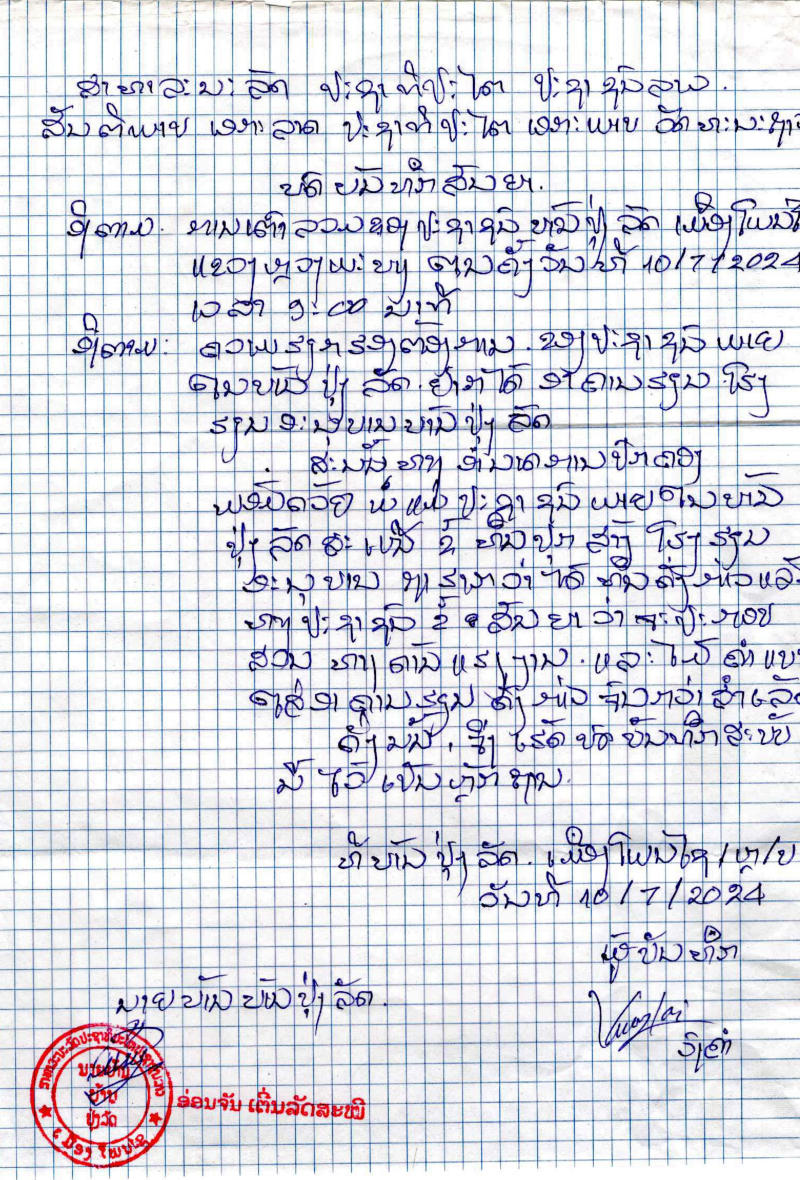 ສາທາລະນະລັດ ປະຊາທິປະໄຕ ປະຊາຊົນລາວ.
ສັນຕິພາບ ເອກະລາດ ປະຊາທິປະໄຕ ເອກະພາບ ວັດທະນະຖາ
ບົດບັນທຶກສັນຍາ.
ອີງຕາມ. ການເຕົ້າລວມຂອງປະຊາຊົນ ບ້ານປຸ່ງລັດ ເມືອງໂພນໄ
ແຂວງຫຼວງພະບາງ ໃນຄັ້ງວັນທີ 10/7/2024
ເວລາ 9:00 ນາທີ
ອີງຕາມ: ຄວາມຮຽກຮ້ອງຕ້ອງການ. ຂອງປະຊາຊົນ ພາຍ
ໃນບ້ານ ປຸ່ງລັດ. ຢາກໄດ້ ອາຄານຮຽນ ໂຮງ
ຮຽນອະນຸບານບ້ານປຸ່ງລັດ
. ສະນັ້ນ ທາງ ອຳນາດການປົກຄອງ
ພໍ່ແມ່ປະຊາຊົນ ພາຍໃນບ້ານ
ປຸ່ງລັດສະເໜີ ຂໍ ທຶນປຸກສ້າງ ໂຮງຮຽນ
ອະນຸບານ ຖ້າຫາກວ່າໄດ້ ທຶນດັ່ງກ່າວແລ້
ທາງປະຊາຊົນ ຂໍສັນຍາວ່າຈະປະກອບ
ສ່ວນ ທາງດ້ານແຮງງານ. ແລະໄມ້ຄຳແບບ
ໃສ່ອາຄານຮຽນ ດັ່ງກ່າວຈົນກວ່າສຳເລັ
ດັ່ງນັ້ນ. ຈຶ່ງໄດ້ເຮັດບົດບັນທຶກສະບັບ
ນີ້ ໄວ້ເປັນຫຼັກຖານ.
ທີ່ບ້ານປຸ່ງລັດ. ເມືອງໂພນໄຊ/ຫຼ/ບ
ວັນທີ 10/7/2024
ຜູ້ບັນທຶກ
ນາຍບ້ານ ບ້ານປຸ່ງລັດ.
ວັງຄຳ
ນາຍບ້ານ
ບ້ານ
ປຸ່ງລັດ
ອ່ອນຈັນ ເຕິ່ນລັດສະໝີ